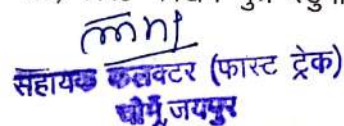 सहायक कलक्टर (फास्ट ट्रेक)
चोमूं, जयपुर